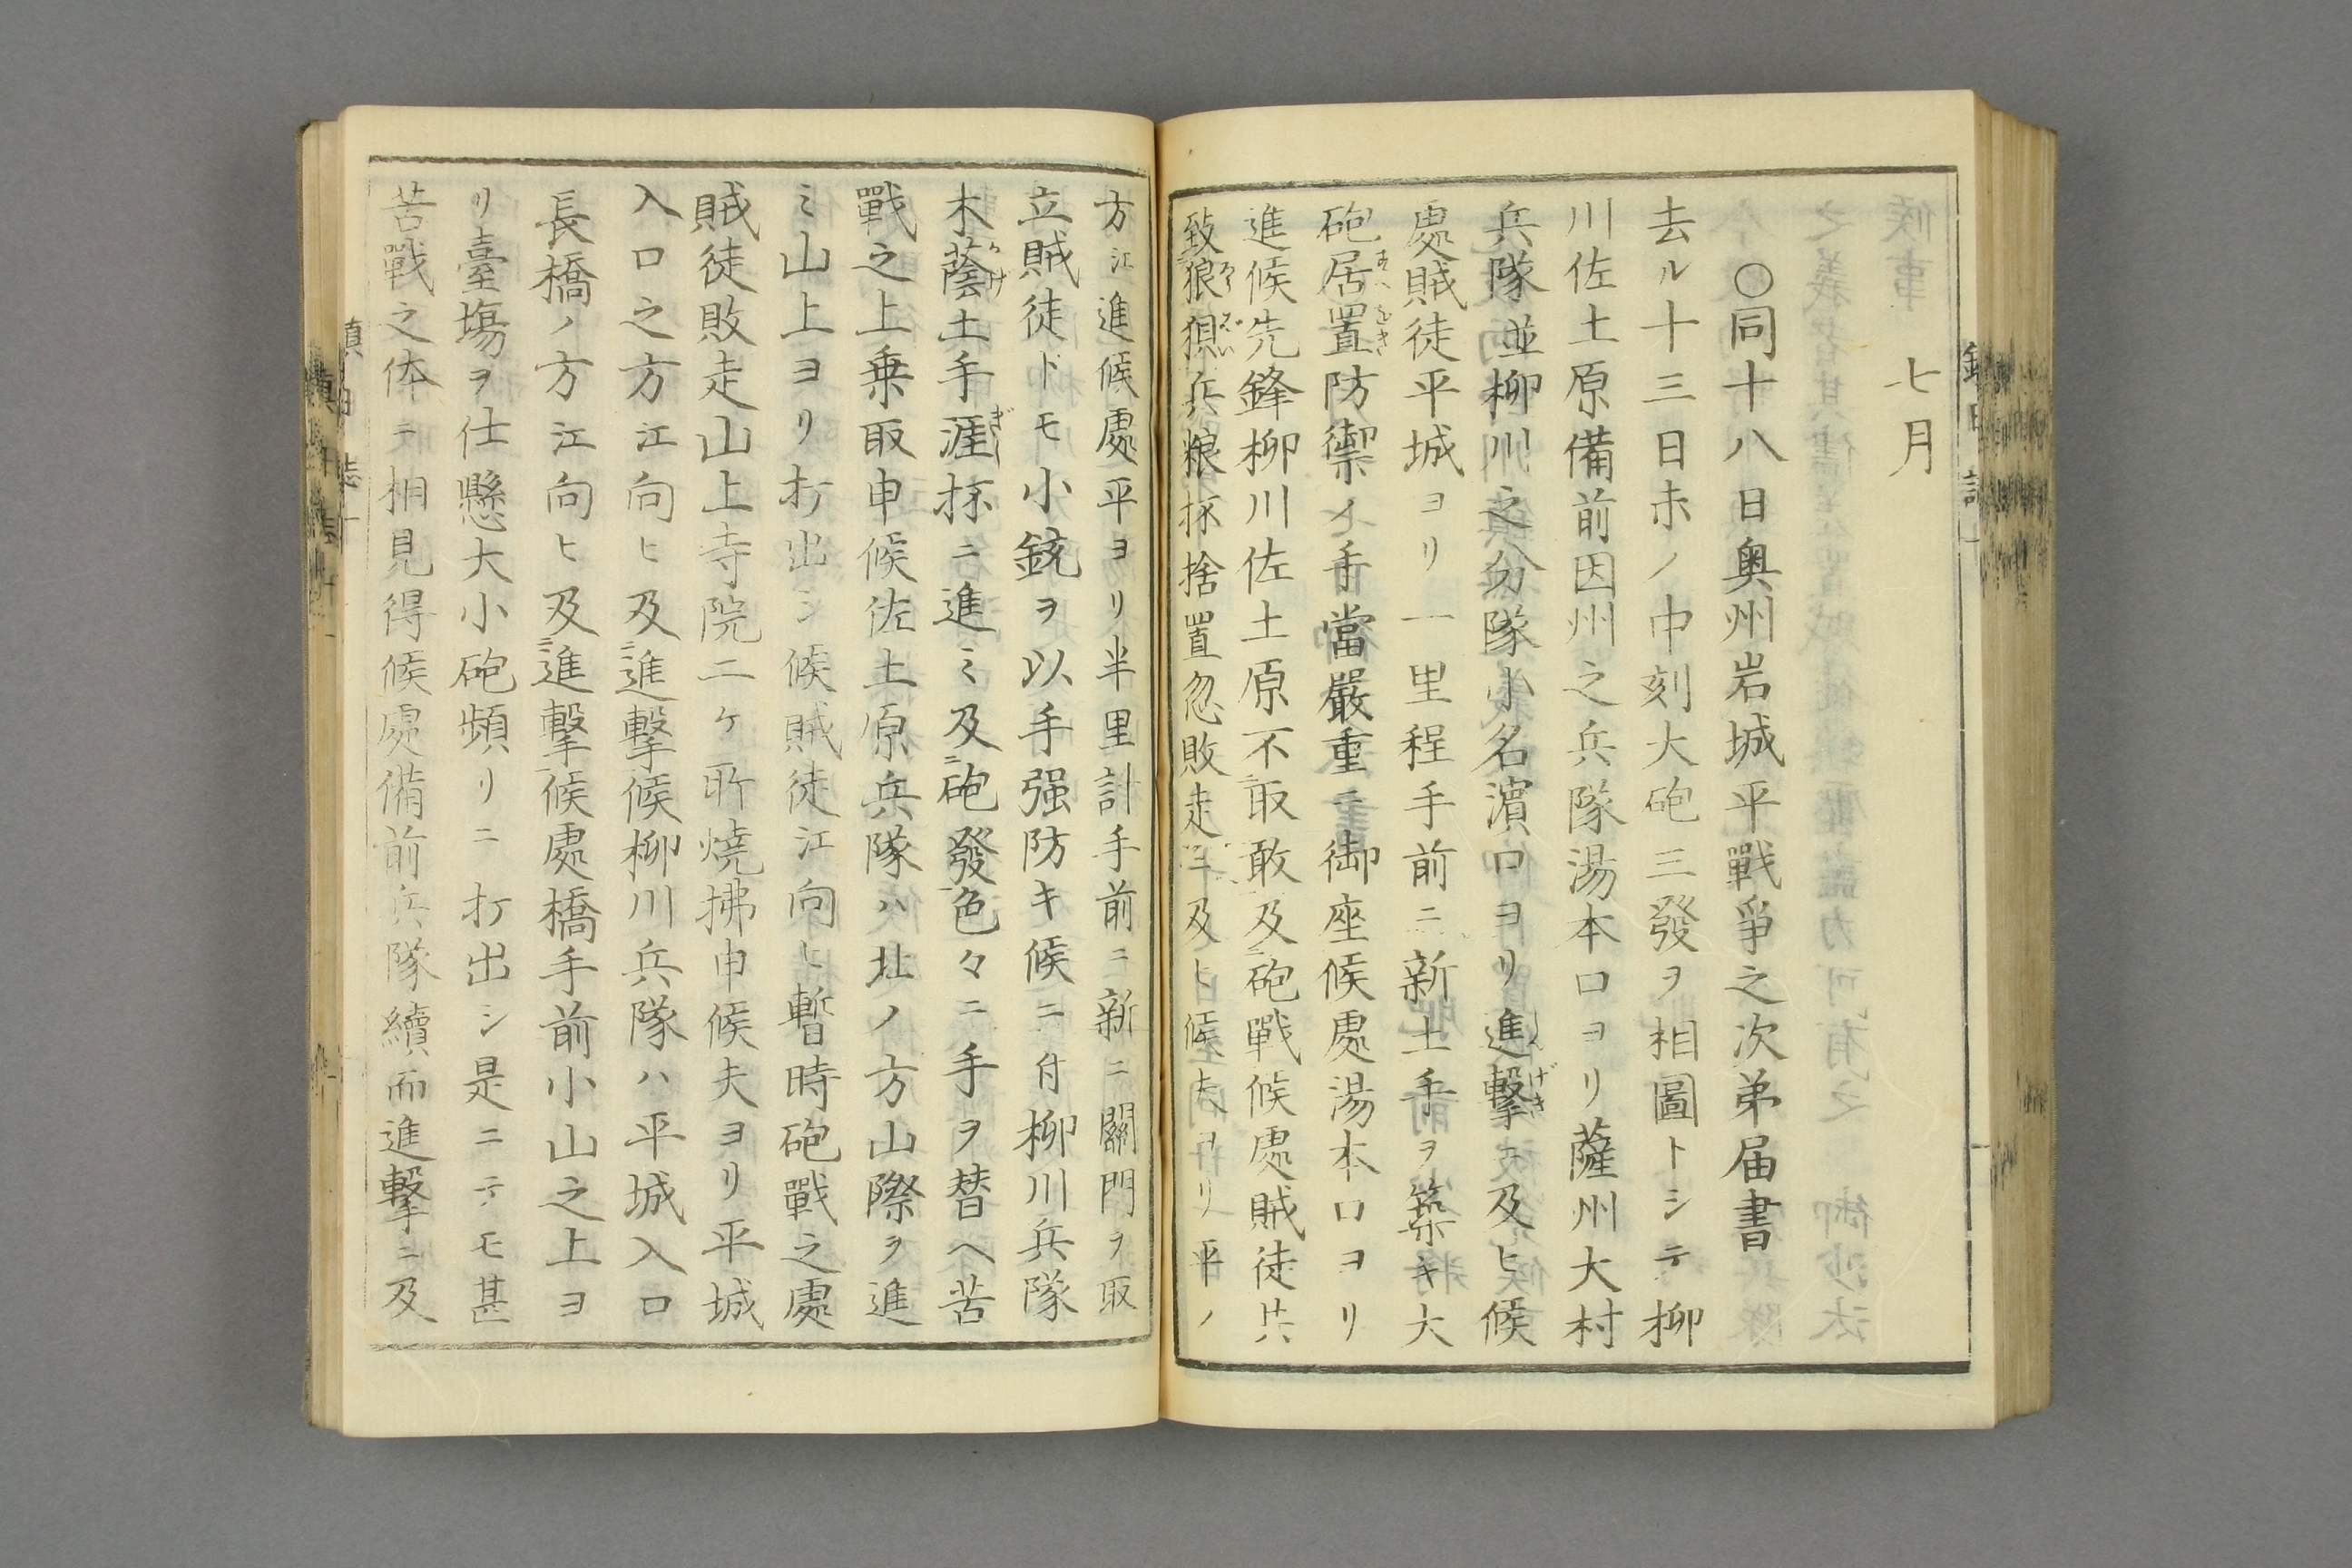 七月
○同十八日奥州岩城平戰爭之次弟届書
去ル十三日未ノ中刻大砲三發ヲ相圖トシテ柳
川佐土原備前因州之兵隊湯本口ヨリ薩州大村
兵隊並柳川之分隊小名濱口ヨリ進撃ニ及ヒ候
處賊徒平城ヨリ一里程手前ニ新土手ヲ築キ大
砲居置防禦ノ手當嚴重ニ御座候處湯本口ヨリ
進候先鋒柳川佐土原不取敢及ニ砲戰候處賊徒共
致狼狽兵粮抔捨置忽敗走ニ及ヒ候夫ヨリ平ノ
方江進候處平ヨリ半里計手前ニ新ニ關門ヲ取
立賊徒ドモ小銃ヲ以手强防キ候ニ付柳川兵隊
木蔭土手涯抔ニ進ミ及ニ砲發色々ニ手ヲ替ヘ苦
戰之上乗取申候佐土原兵隊ハ北ノ方山際ヲ進
ミ山上ヨリ打出シ候賊徒江向ヒ暫時砲戰之處
賊徒敗走山上寺院二ケ所燒拂申候夫ヨリ平城
入口之方江向ヒ及ニ進撃候柳川兵隊ハ平城入口
長橋ノ方江向ヒ及ニ進撃候處橋手前小山之上ヨ
リ臺塲ヲ仕懸大小砲頻リニ打出シ是ニテモ甚
苦戰之体ニ相見得候處備前兵隊續而進撃ニ及